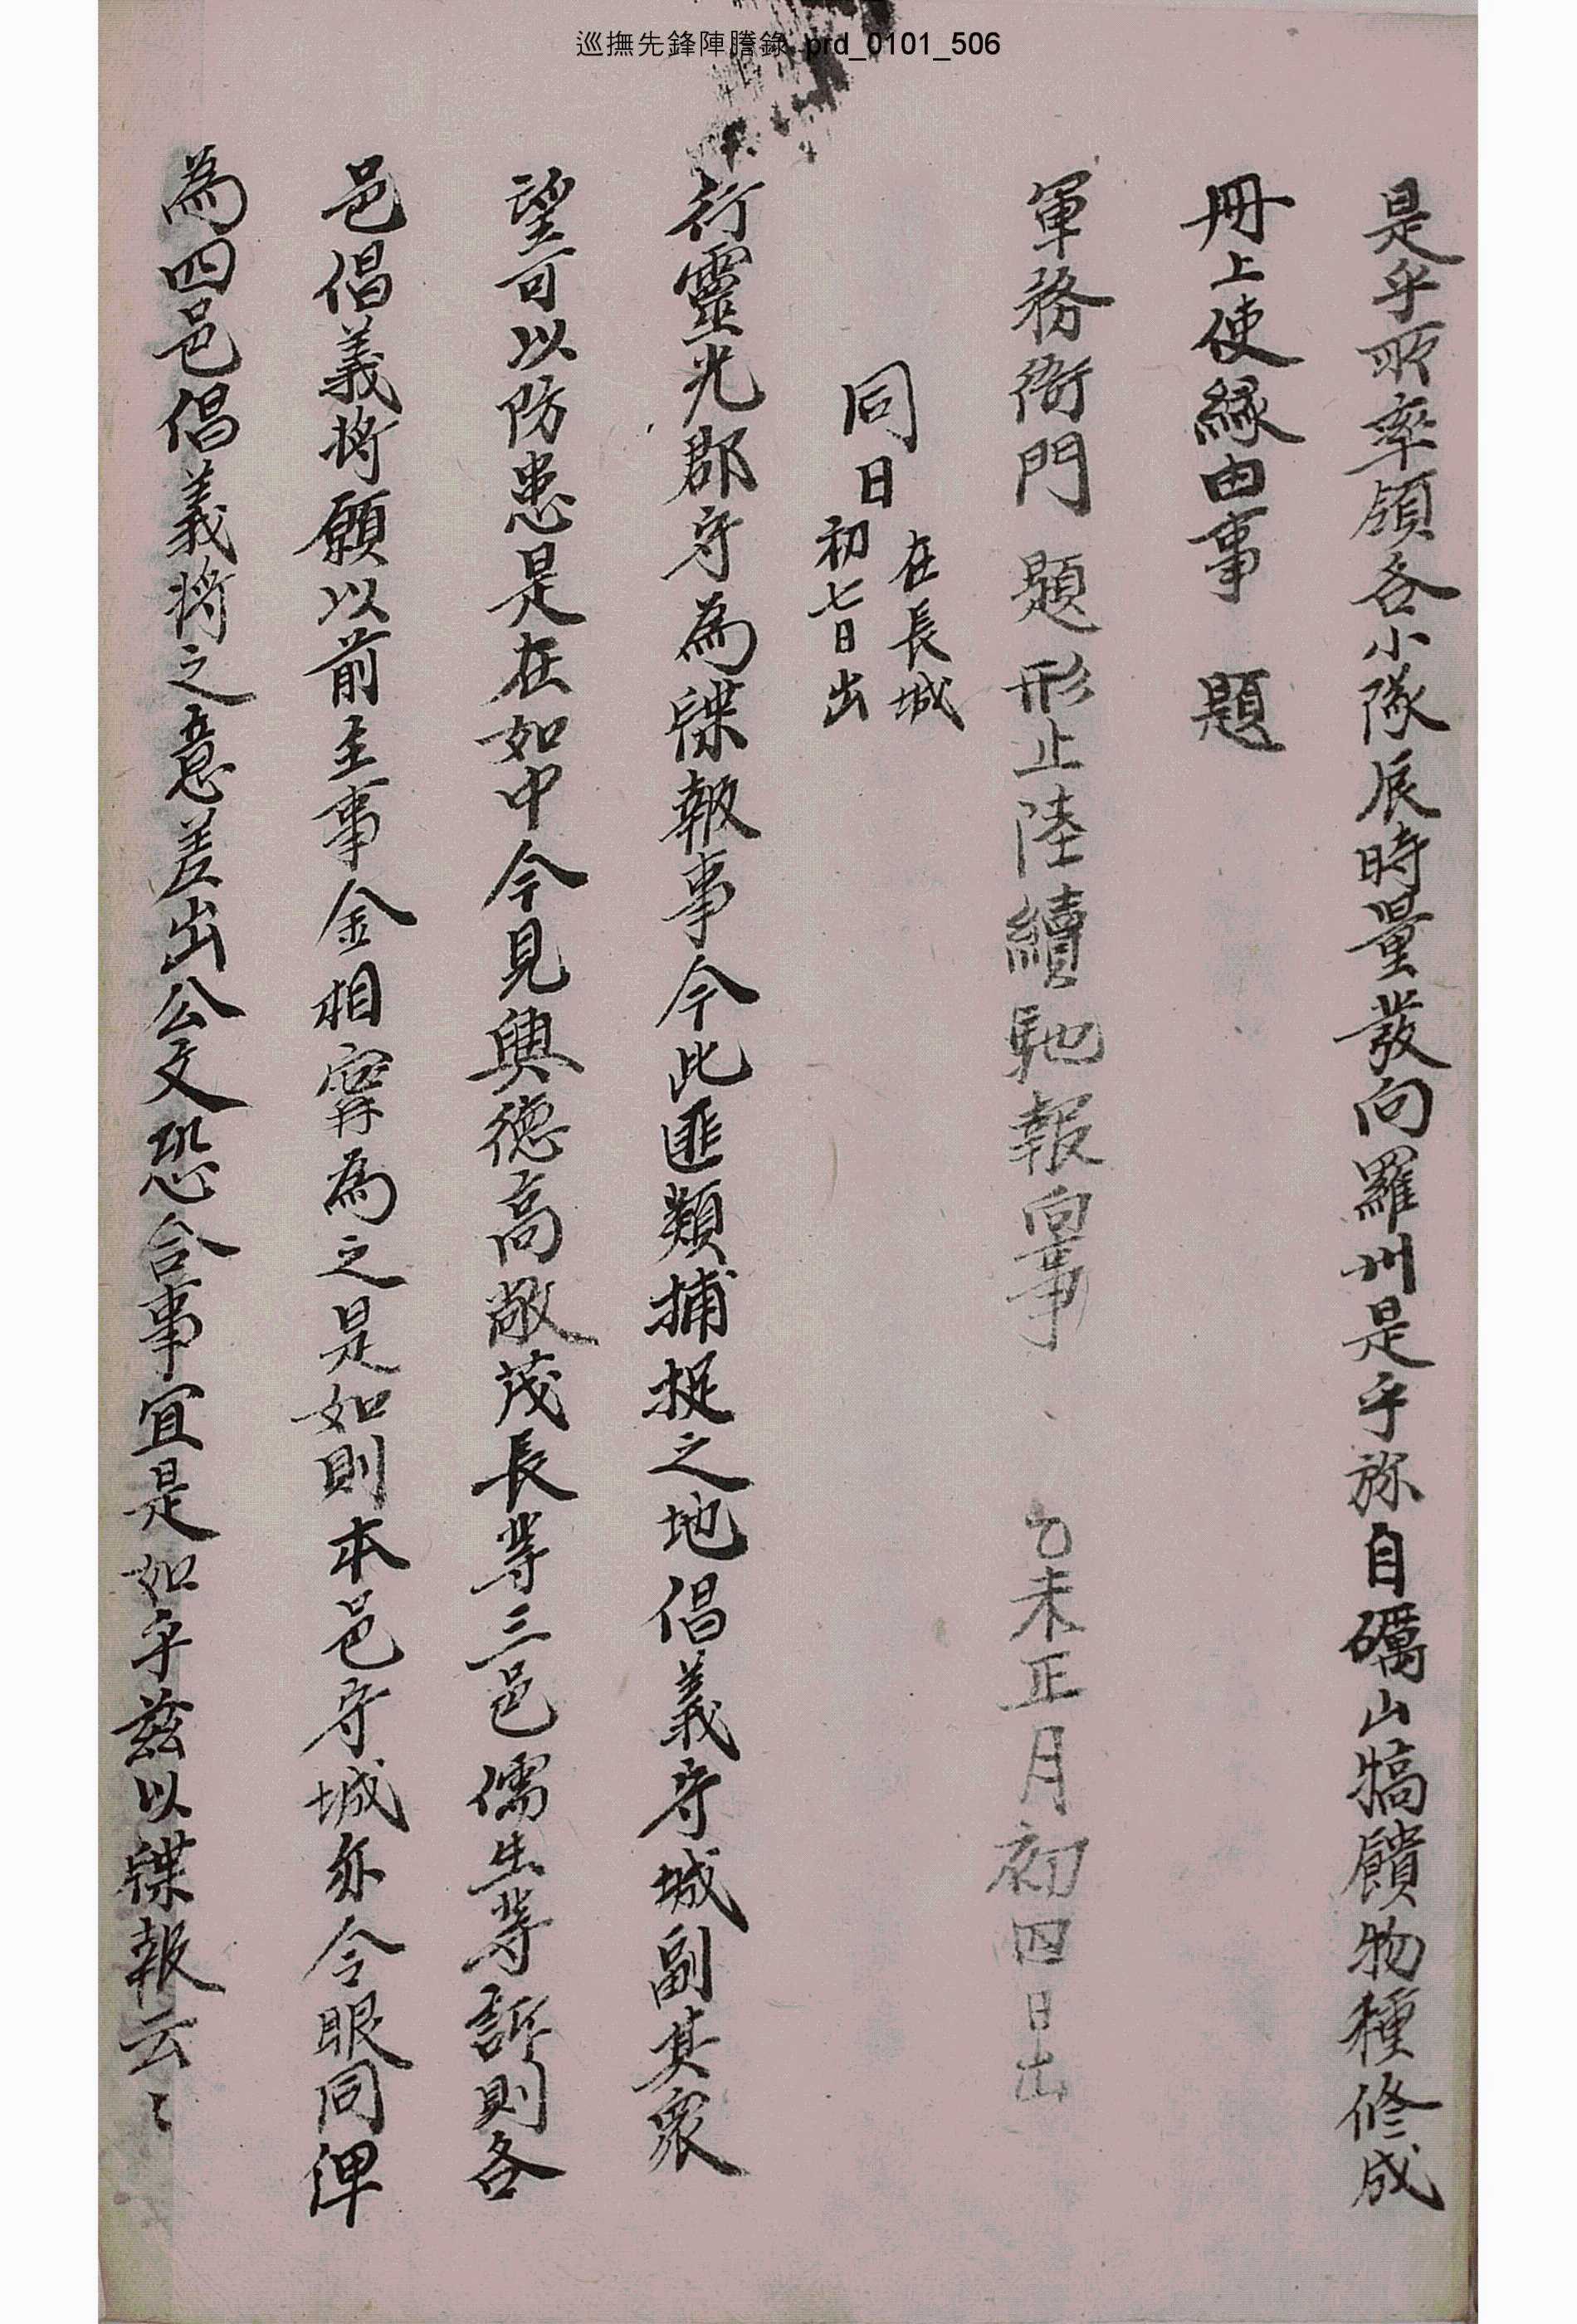 巡撫先鋒陣謄錄 prd_0101_506
是乎所率領各小隊辰時量發向羅州是乎旀自礪山犒饋物種修成
冊上使緣由事 題
軍務衙門 題 形止陸續馳報向事 乙未正月初四日出
同日 在長城 初七日出
行靈光郡守為牒報事今此匪類捕捉之地倡義守城副其衆
望可以防患是在如中今見興德高敞茂長等三邑儒生等訴則各
邑倡義將願以前主事金相寗為之是如則本邑守城亦令眼同俾
為四邑倡義將之意差出公文恐合事宜是如乎玆以牒報云〻